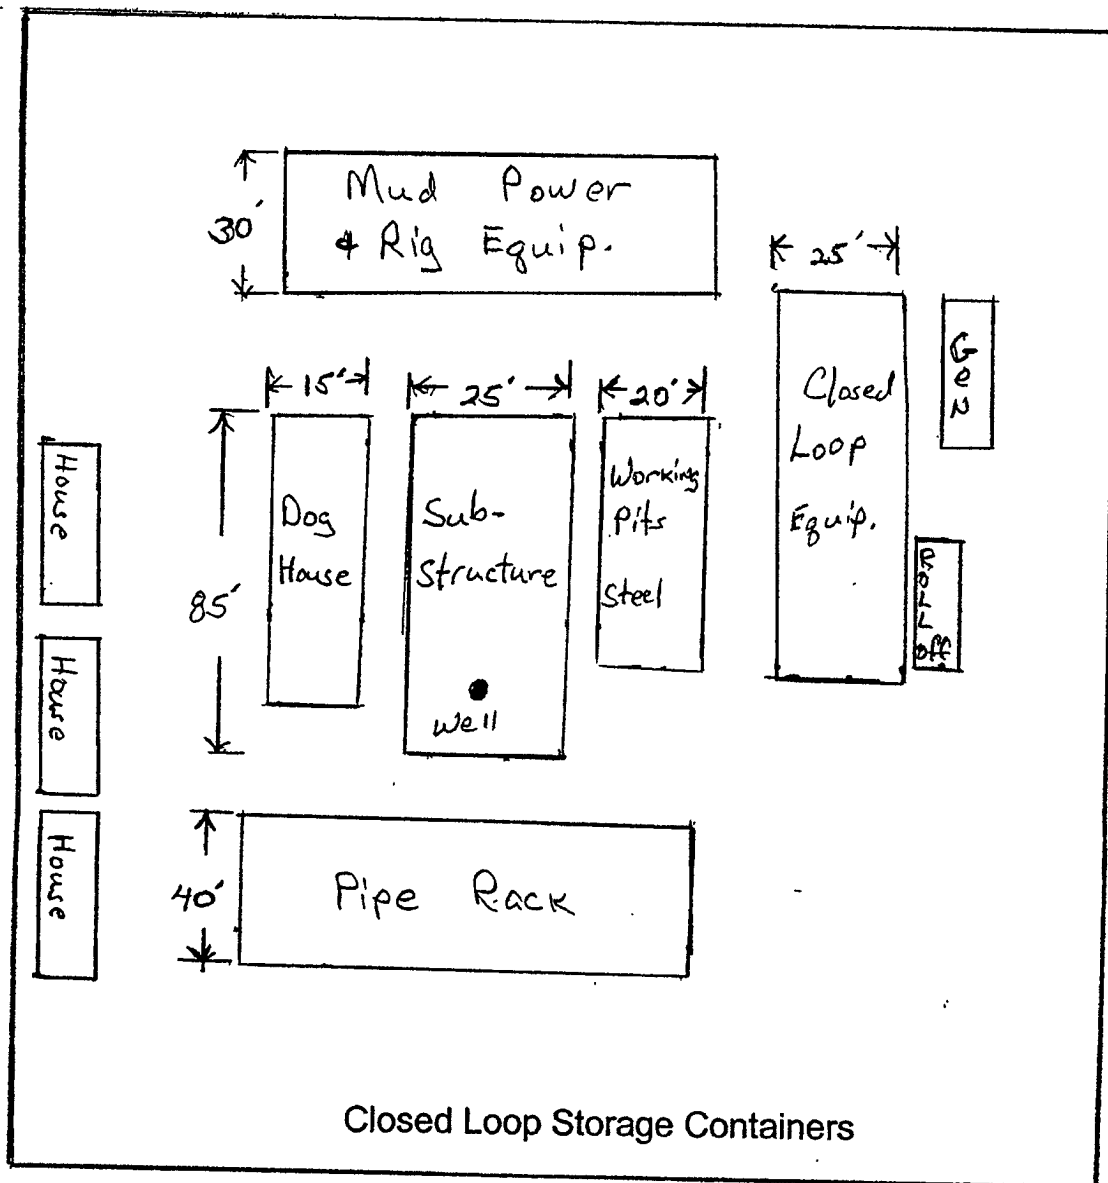 Mud Power
& Rig Equip.
30'
25'
Gen
15'
25'
20'
Closed
Loop
Equip.
House
Dog
House
Sub-
Structure
Working
Pits
Steel
85'
Roll off
Well
House
House
40'
Pipe Rack
Closed Loop Storage Containers